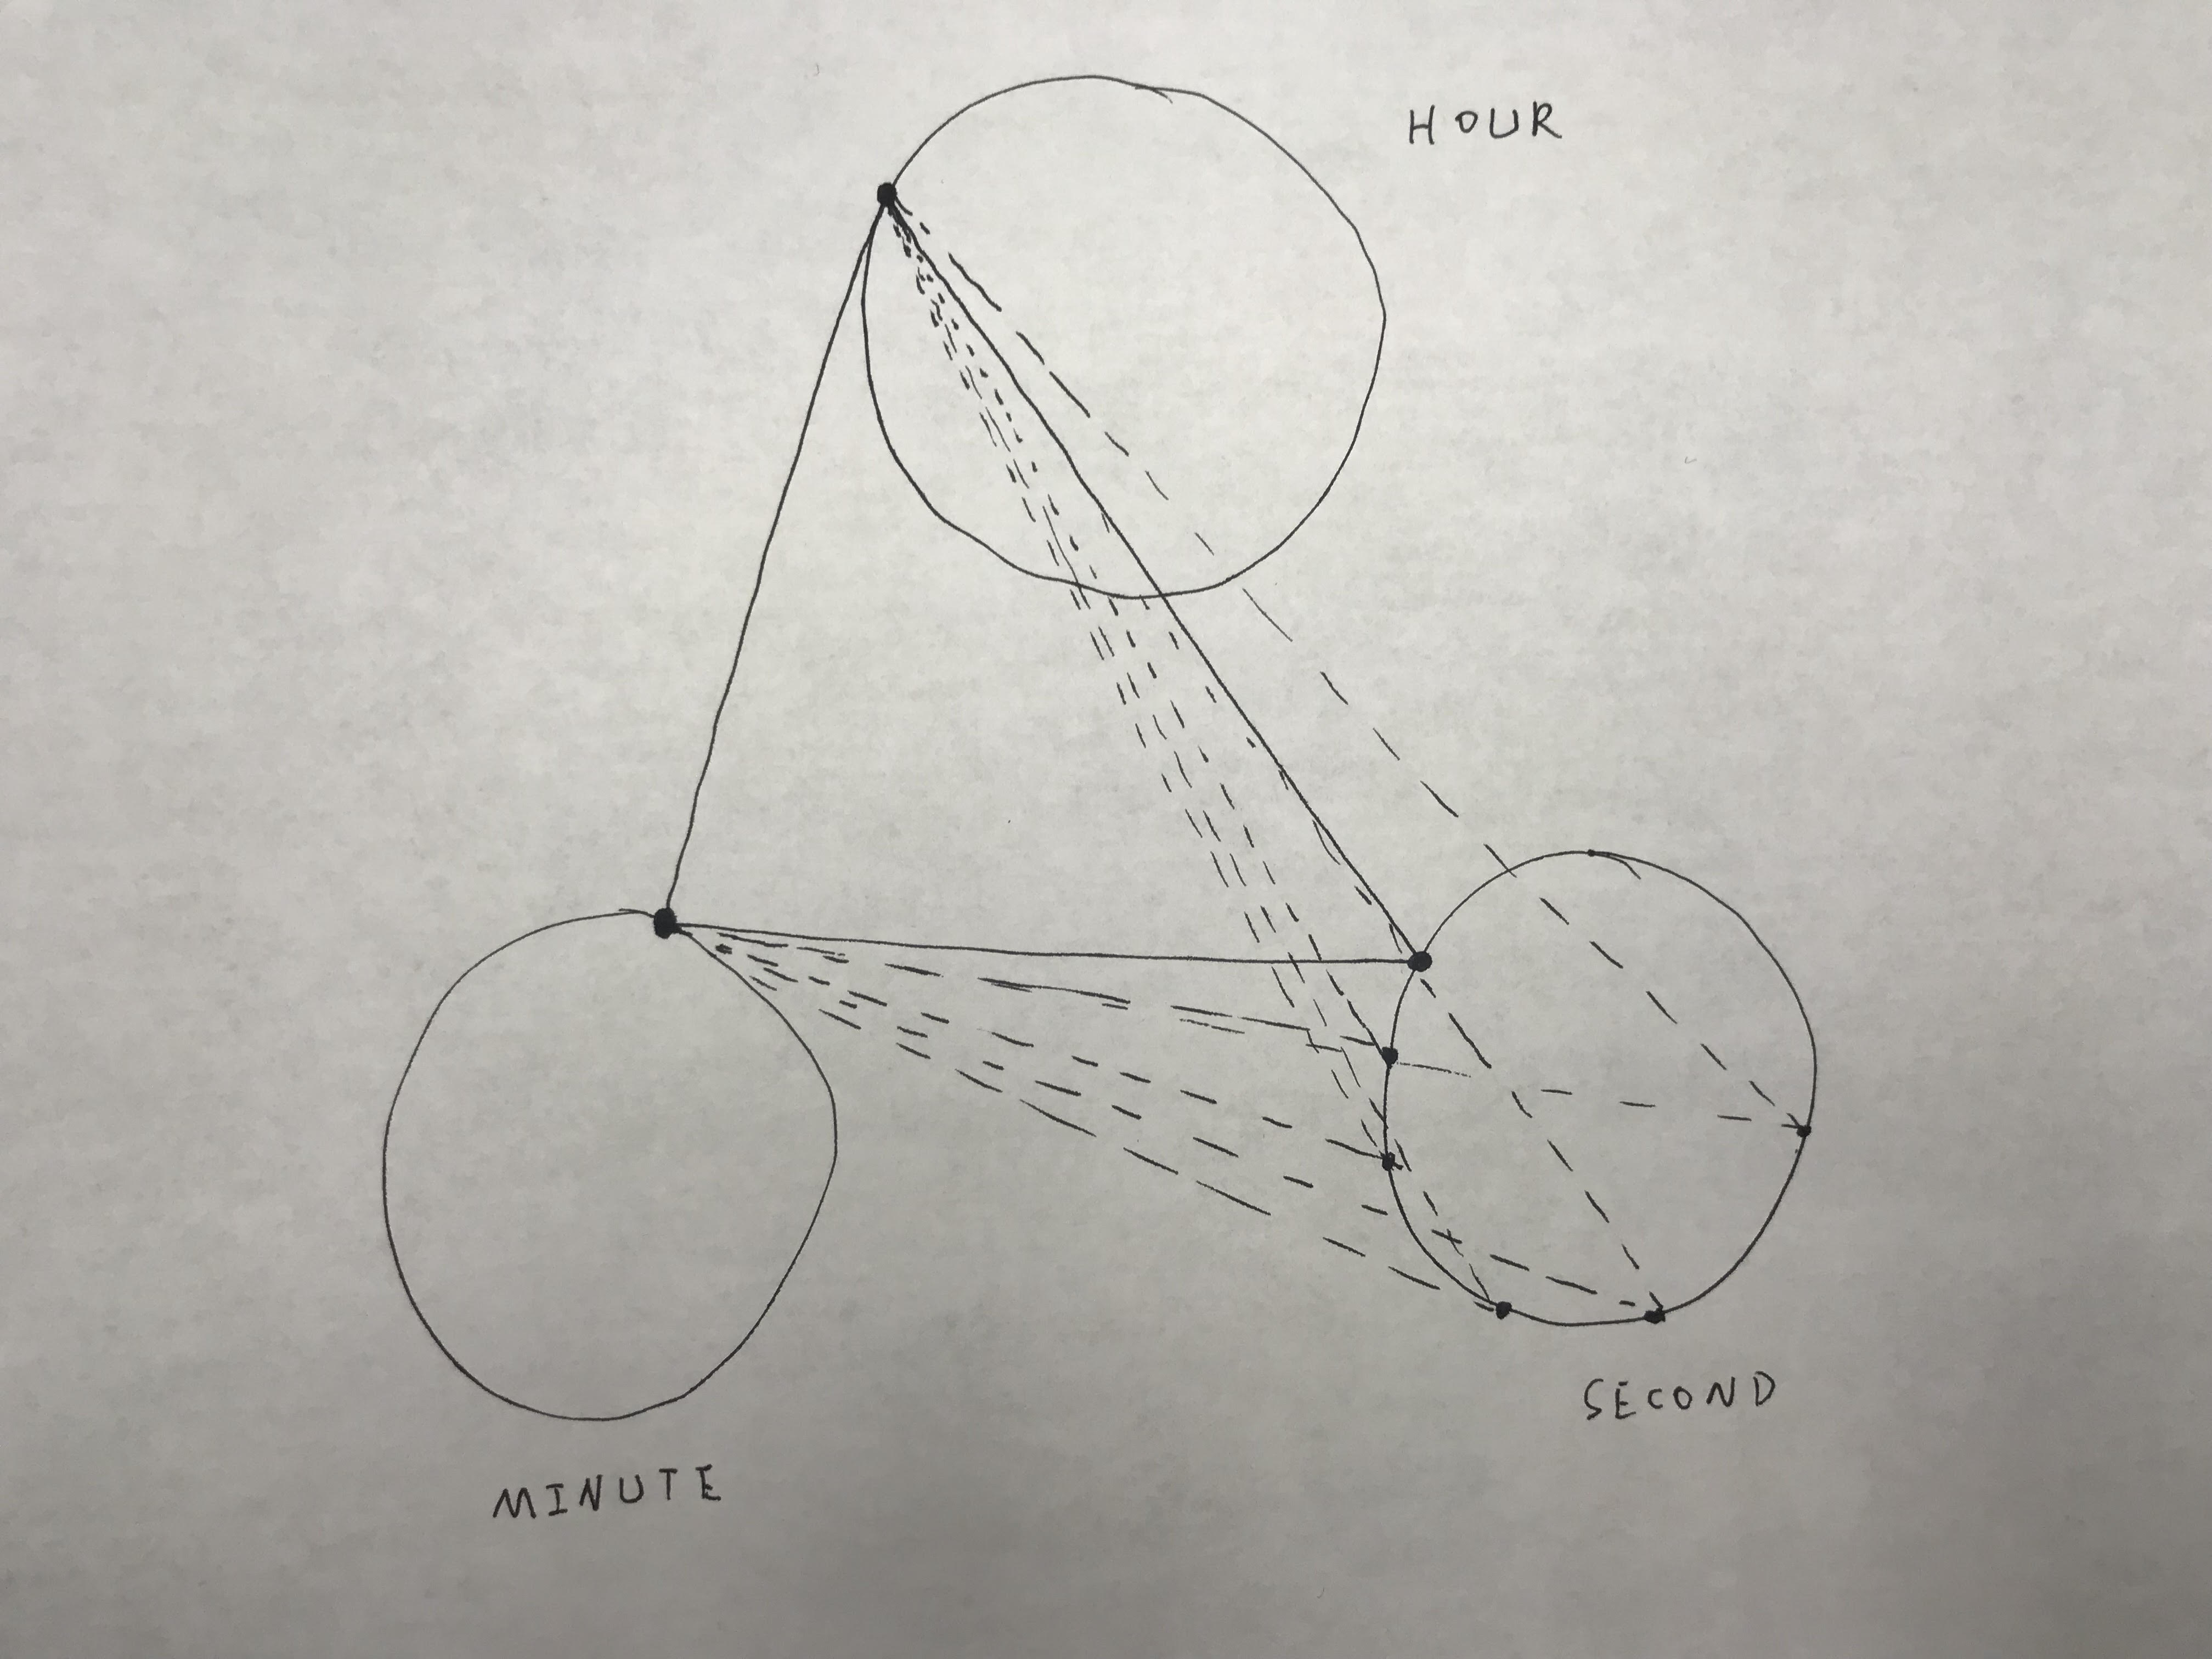 HOUR
SECOND
MINUTE